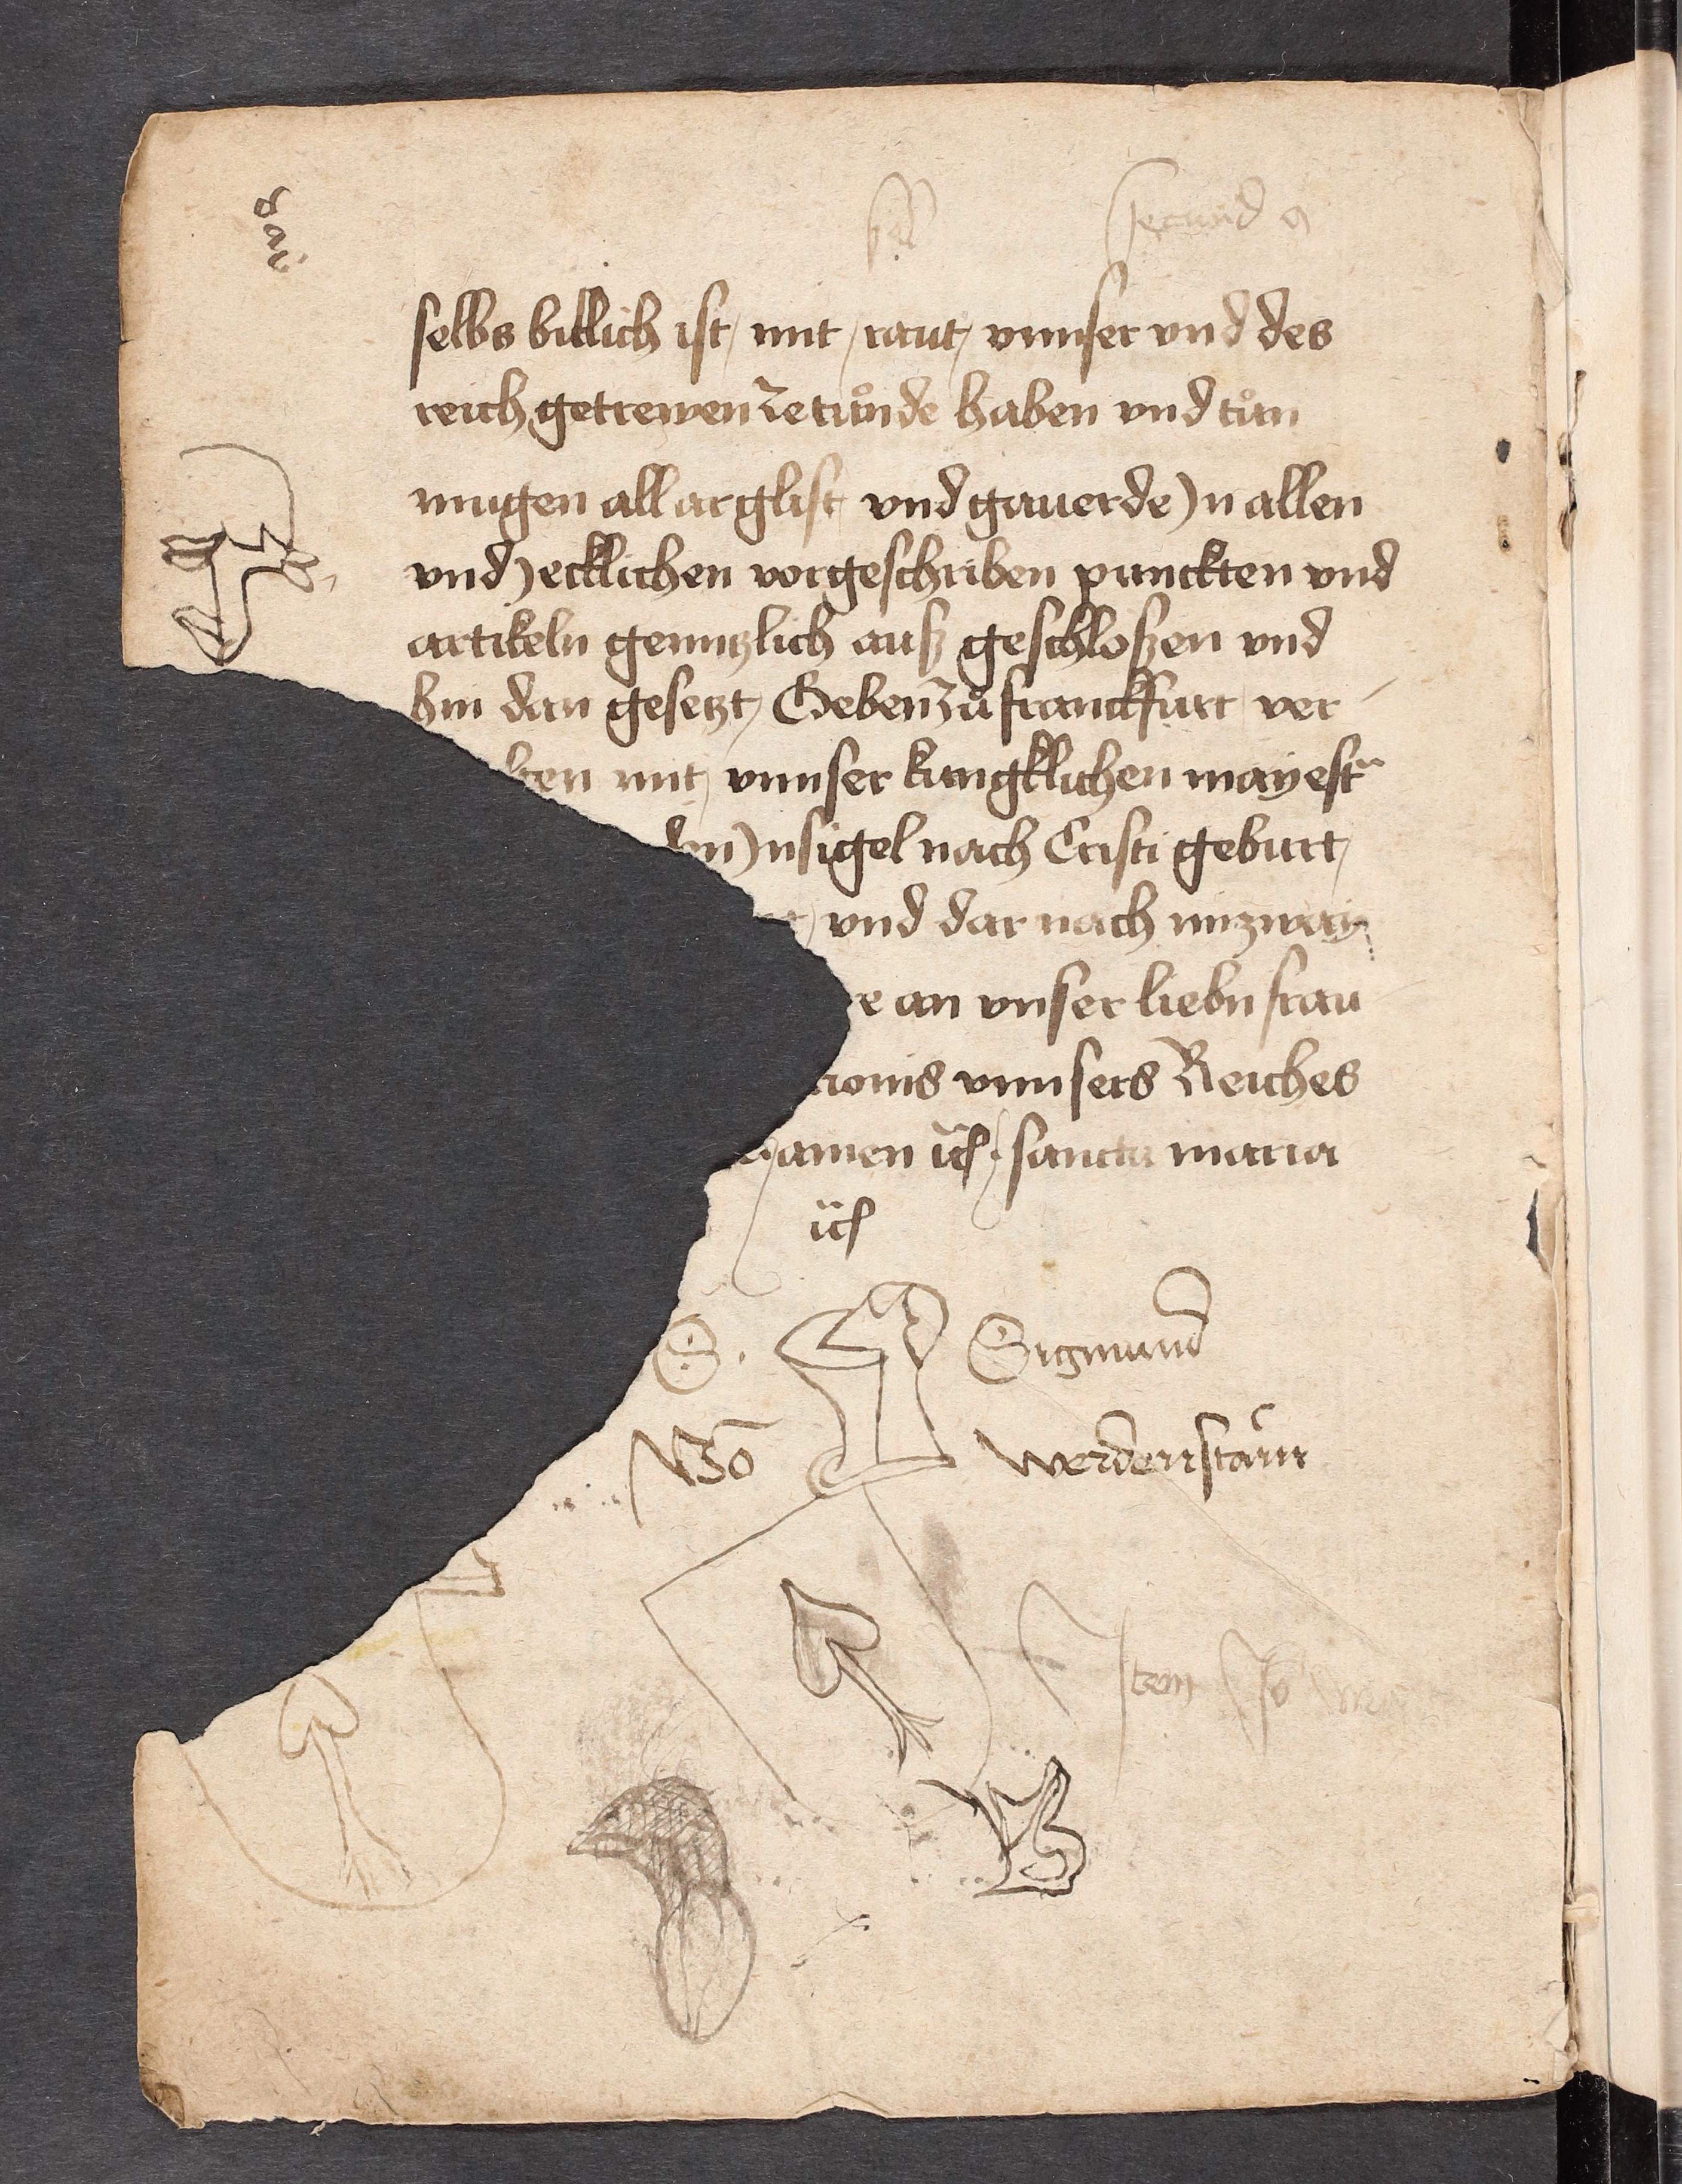 secund
selbs billich ist / mit / raut / vnnser vnd des
reich getrewen ze tůnde haben vnd tůn
mugen all arglist vnd gauerde Jn allen
vnd Jecklichen vorgeschriben punckten vnd
artikeln genntzlich auß geschloßen vnd
hin dan gesetzt / Geben Zů franckfurt ver
ten mit / vnnser kungklichen mayest
Jnsigel nach Cristi geburt /
vnd dar nach im zway
e an vnser liebn frau
ronis vnnsers Reiches
amen ıc / sancta maria
ıc
S. Sigmund
Vō werdenstain
Item